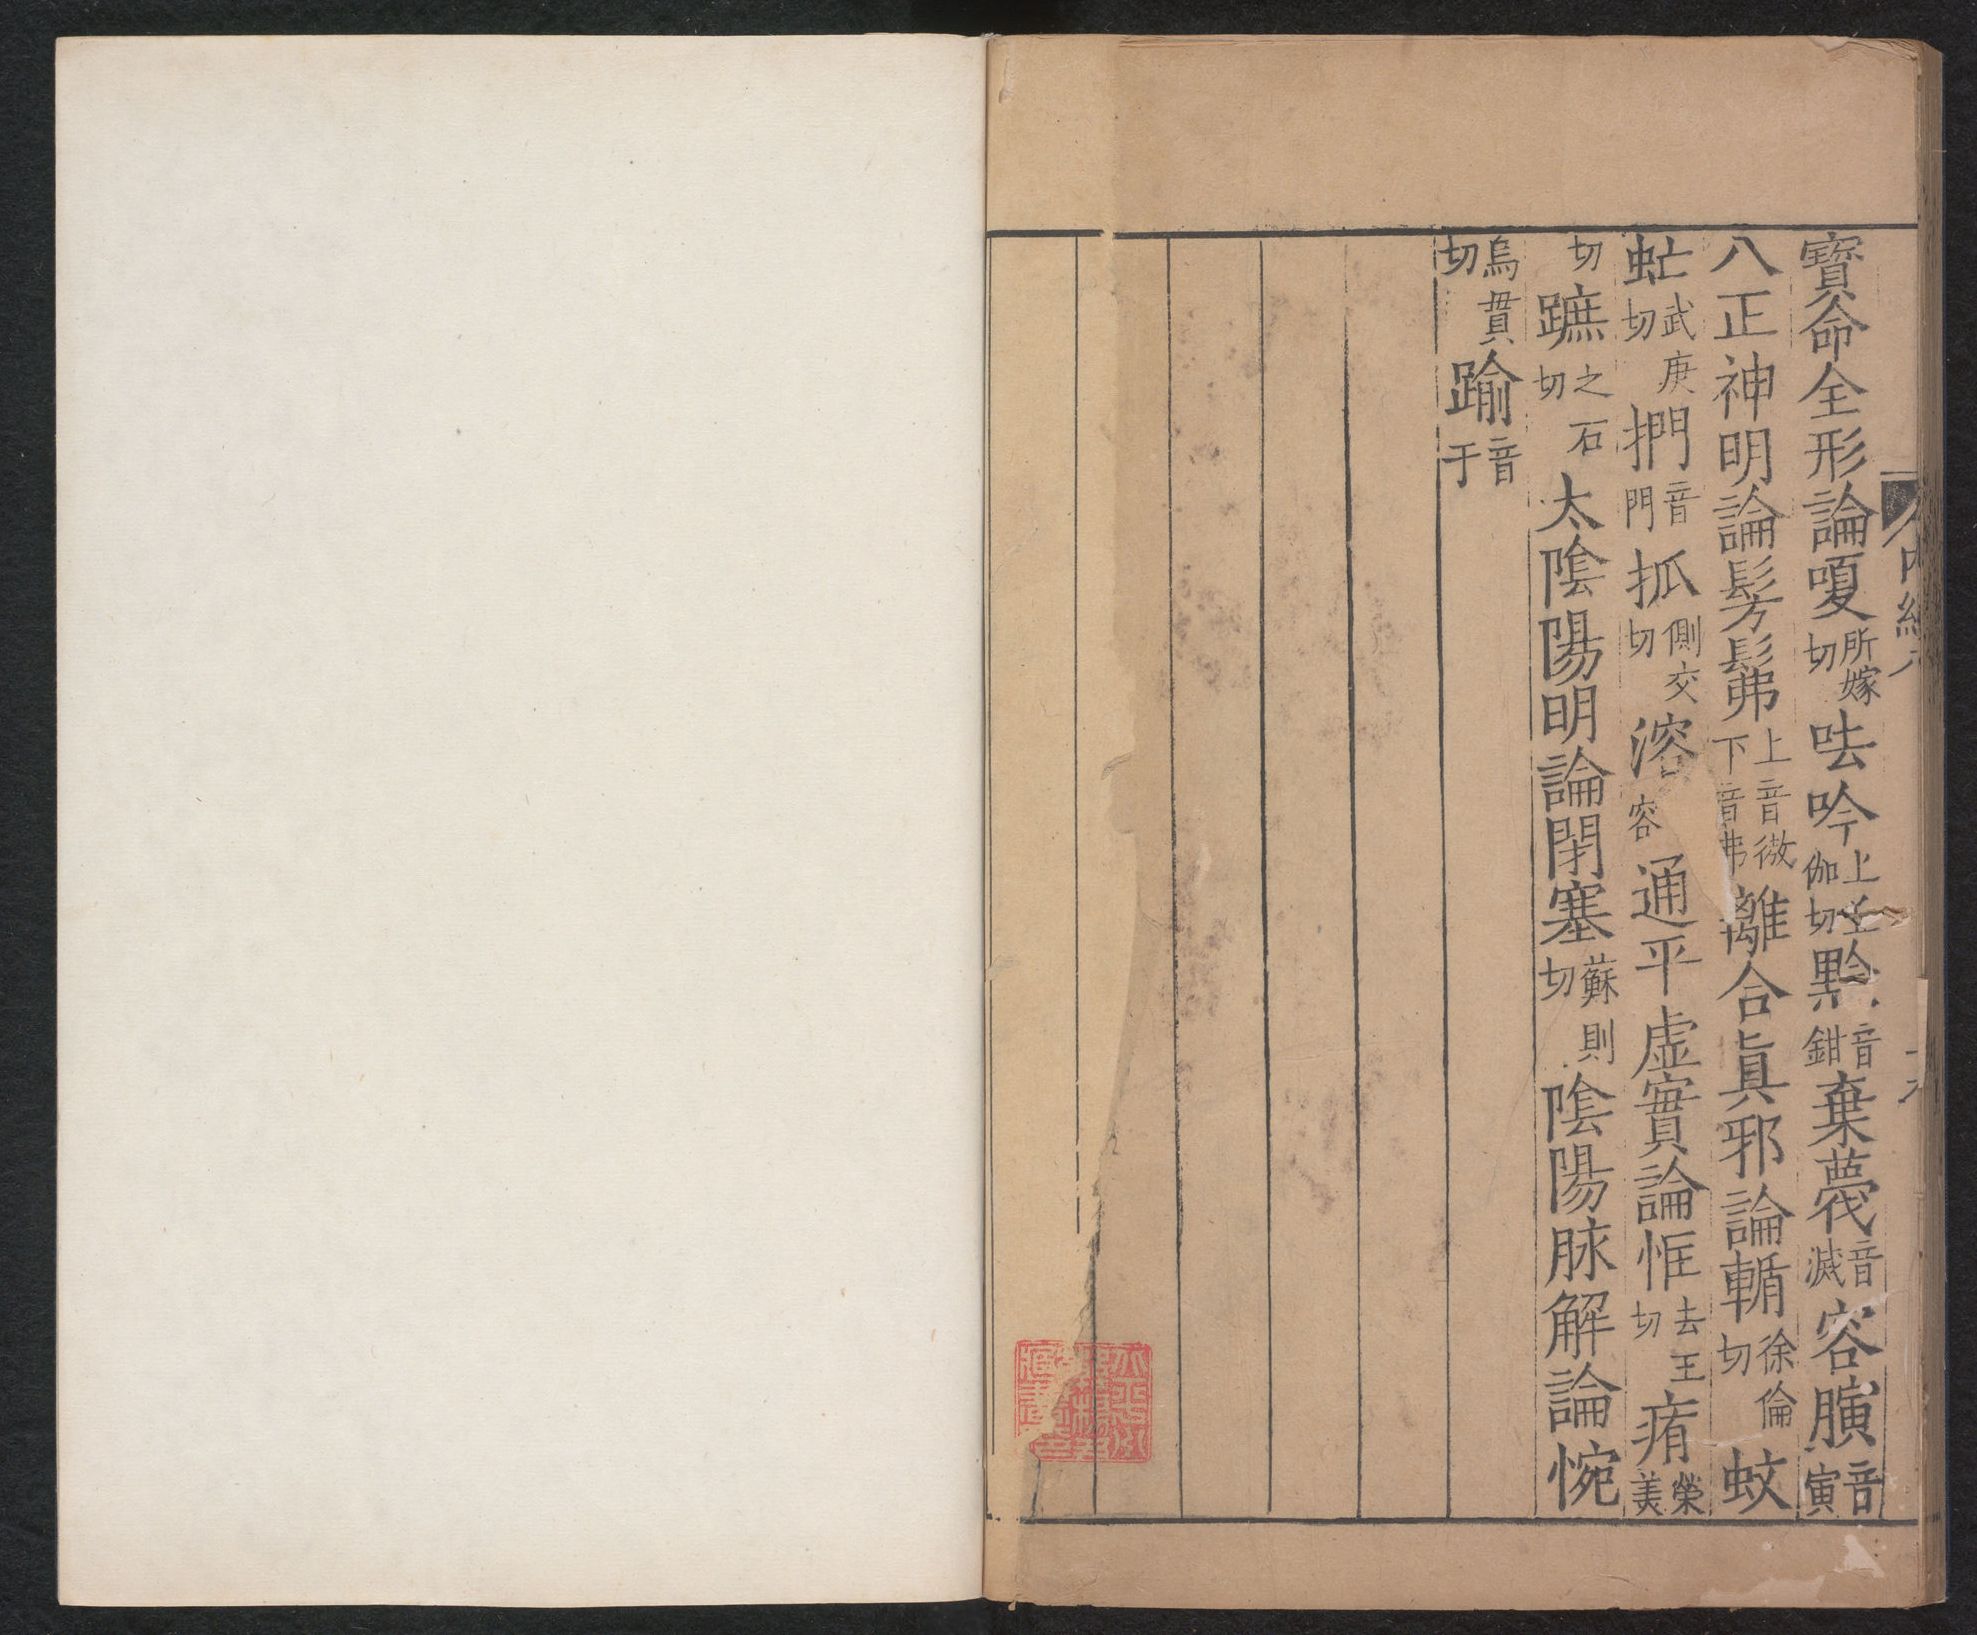 寶命全形論嗄所嫁切呿吟上丘伽切黔音鉗棄薎音滅容䐹音寅
八正神明論髣髴上音倣下音弗離合眞邪論輴徐倫切蚊
虻武庚切捫音門抓側交切溶容通平虛實論恇去王切痏榮美
切蹠之石切太隂陽明論閉塞蘇則切隂陽脉解論惋
烏貫切踰音于